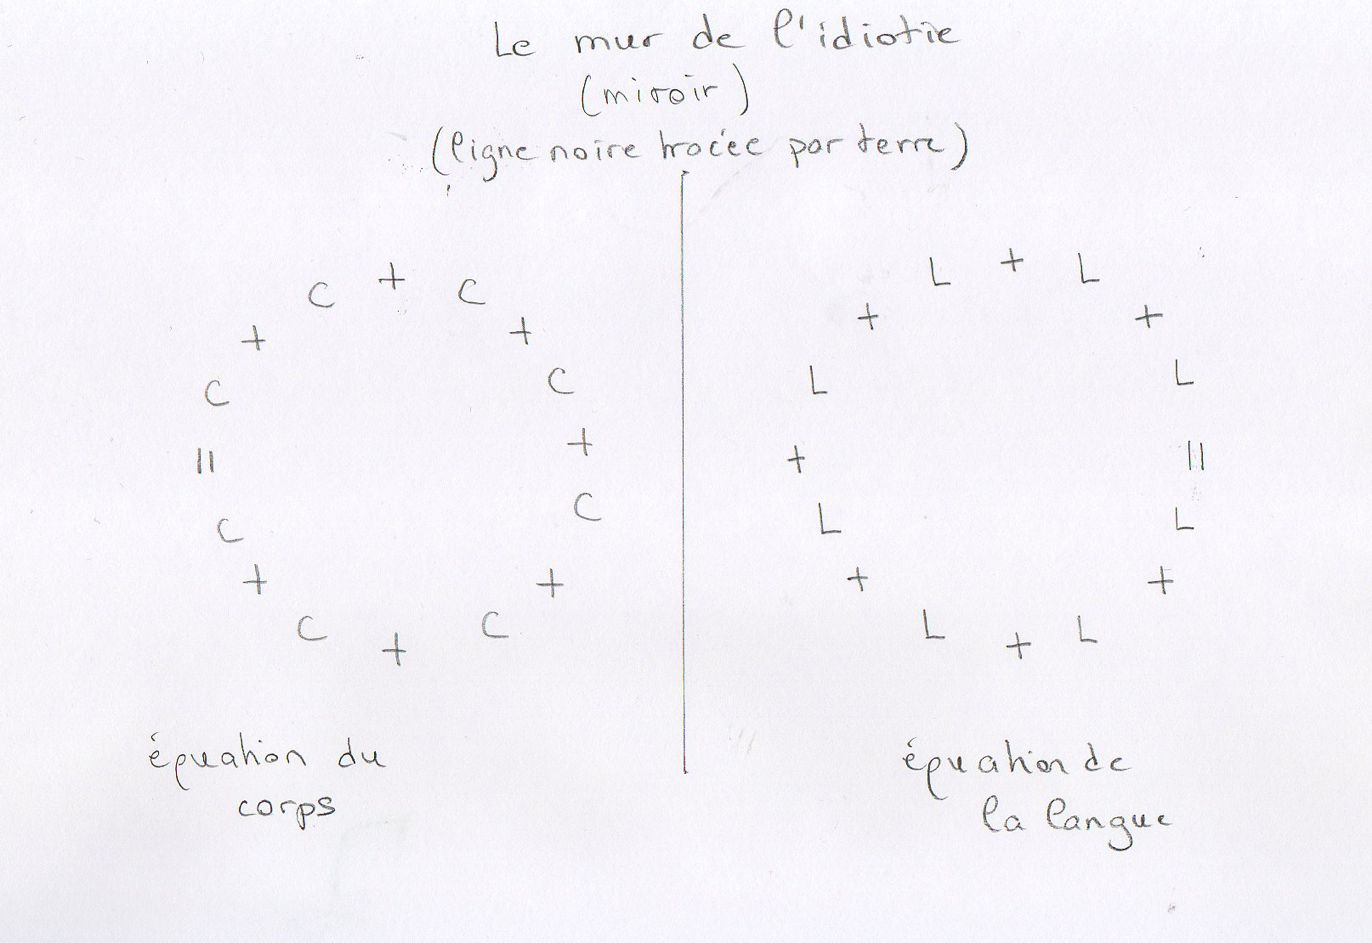 Le mur de l'idiotie
(miroir)
(ligne noire tracée par terre)
C + C
+ +
C C
|| +
C C
+ +
C + C
équation du
corps
L + L
+ +
L L
+ ||
L L
+ +
L + L
équation de
la langue